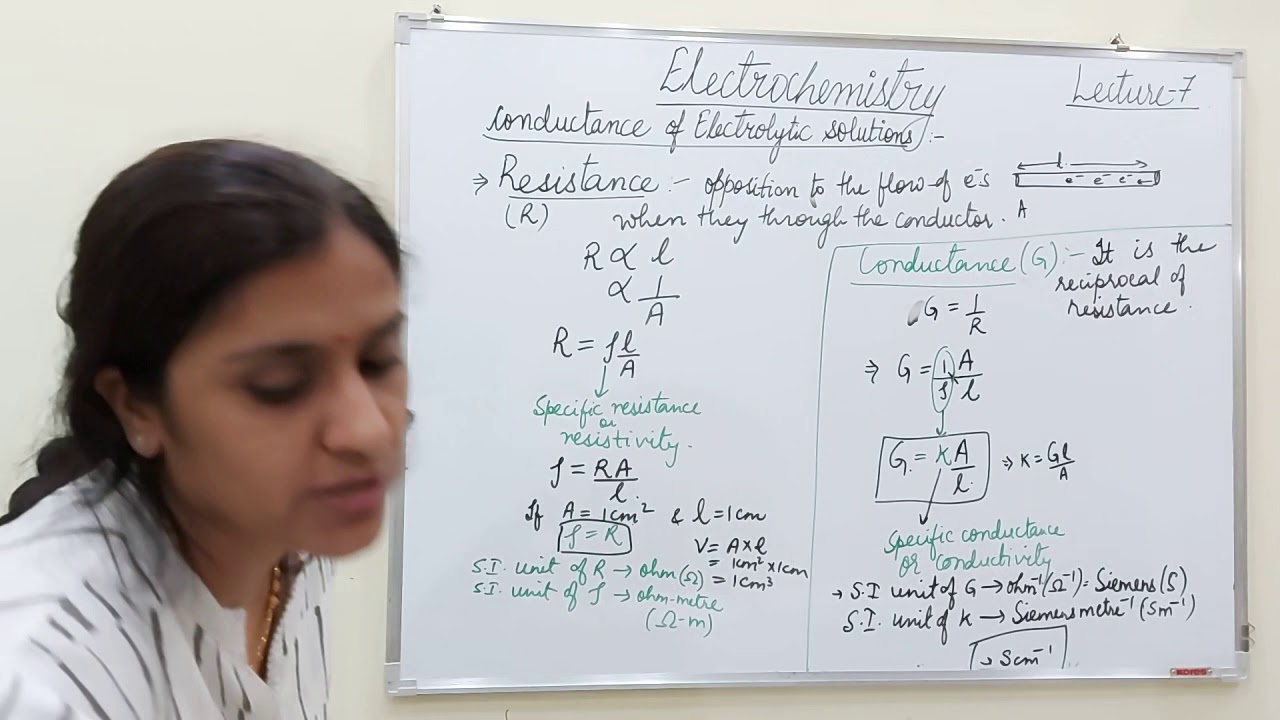 Electrochemistry
Lecture-7
Conductance of Electrolytic solutions:-
⇒ Resistance:- opposition to the flow of e⁻s
(R) when they through the conductor.
l
e⁻ e⁻ e⁻ e⁻
A
R ∝ l
∝ 1/A
R = ρ l/A
Specific resistance
or
resistivity.
ρ = RA/l.
If A = 1cm² & l = 1cm
ρ = R
V = A×l
= 1cm² × 1cm
= 1cm³
S.I. unit of R → ohm (Ω)
S.I. unit of ρ → ohm-metre
(Ω-m)
Conductance (G):- It is the
reciprocal of
resistance.
G = 1/R
⇒ G = 1/ρ × A/l
G = K A/l. ⇒ K = Gl/A
Specific conductance
or conductivity
→ S.I unit of G → ohm⁻¹(Ω⁻¹) = Siemens (S)
S.I. unit of K → Siemens metre⁻¹ (Sm⁻¹)
→ Scm⁻¹
KORES